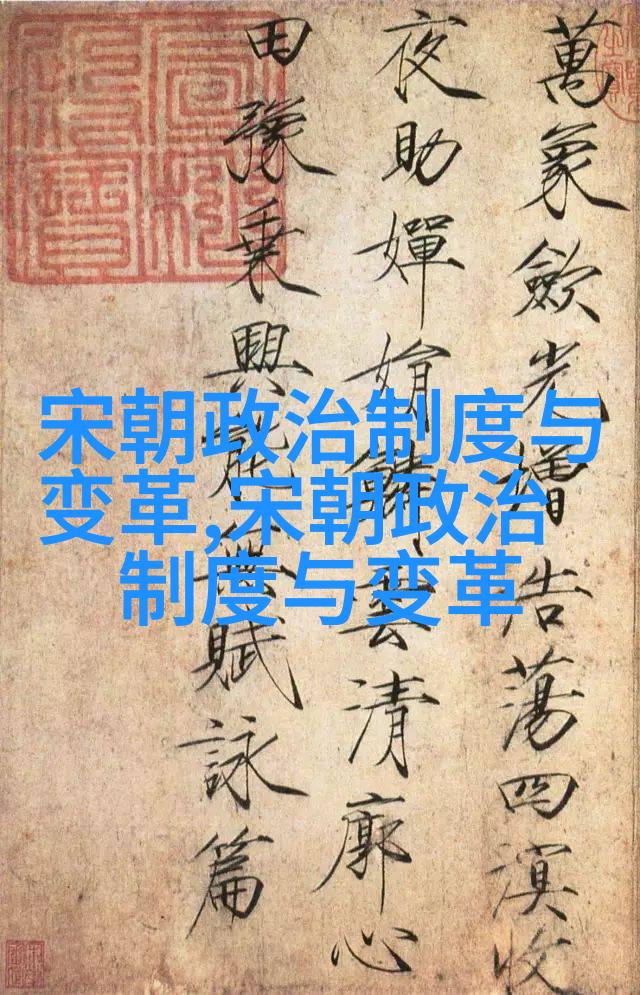 萬象歛光增浩蕩四溟收
夜助嬋娟鱗雲清廓心
田豫乗興能無賦詠篇
宋朝政治制度与
变革,宋朝政治
制度与变革